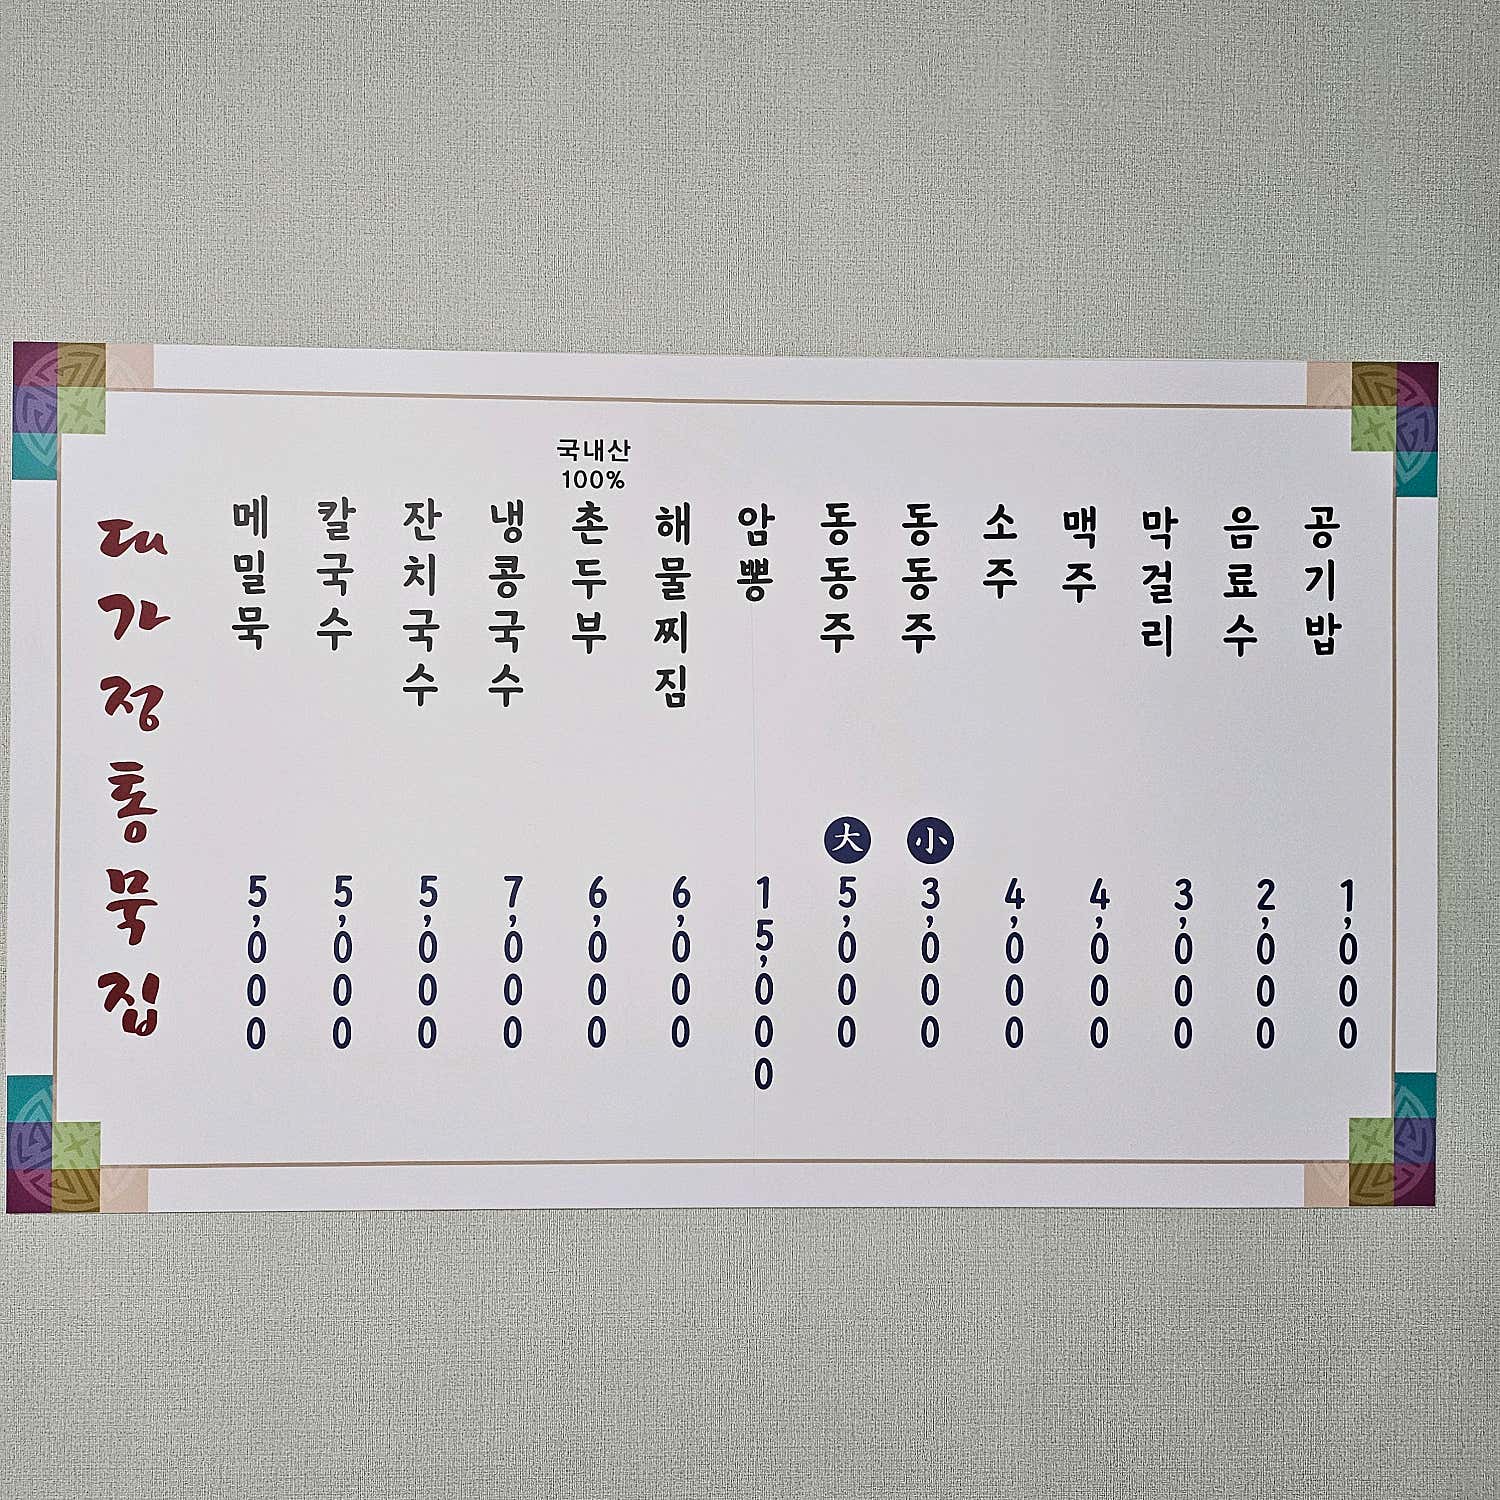 대가정통묵집
메밀묵 5,000
칼국수 5,000
잔치국수 5,000
냉콩국수 7,000
국내산
100%
촌두부 6,000
해물찌짐 6,000
암뽕 15,000
동동주 大 5,000
동동주 小 3,000
소주 4,000
맥주 4,000
막걸리 3,000
음료수 2,000
공기밥 1,000